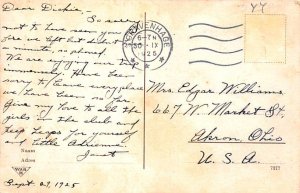 YY
Dear Dickie,
So sorry
not to have seen you
before we left but didn't have
a minute, so planned
We are enjoying our trip
immensely. Have been
sorry to leave every place
we have been so far.
Give my love to all the
girls in the club and
keep heaps for yourself
and little Adrienne.
Janet
Sept. 29, 1925
'S GRAVENHAGE
IX
1925
Mrs Edgar Williams
667 W. Market St
Akron, Ohio
U. S. A.